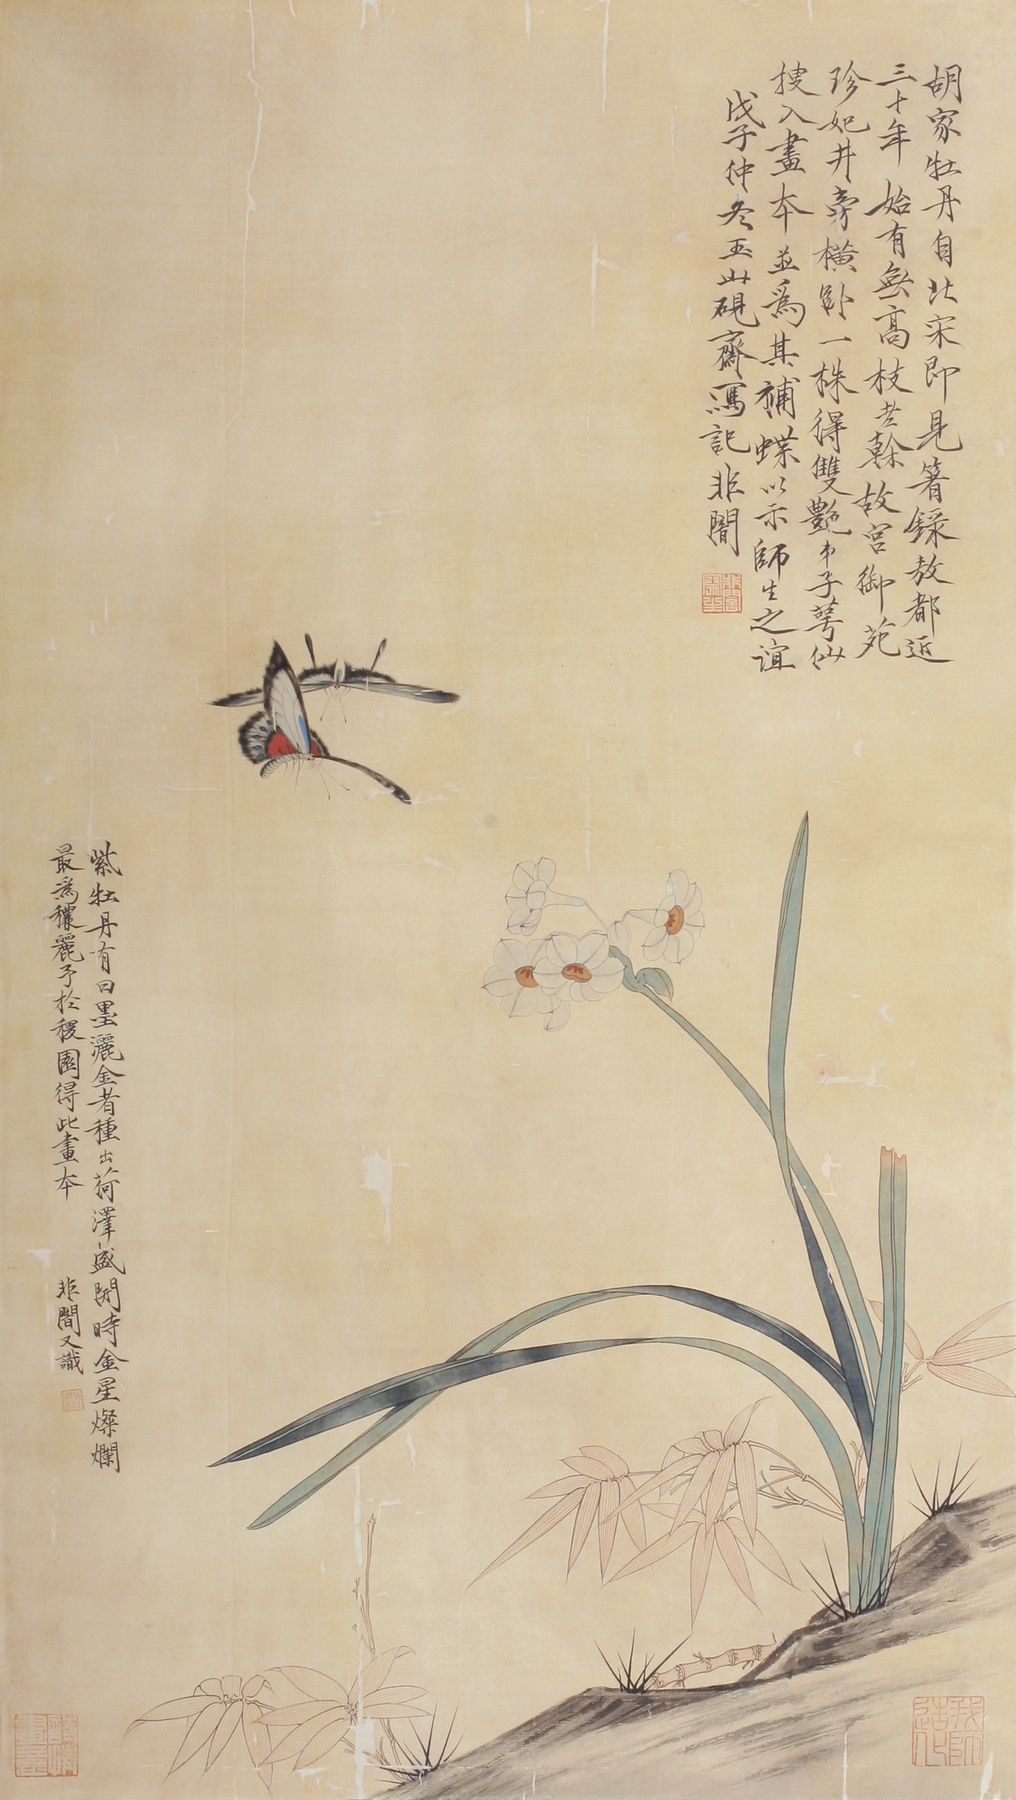 胡家牡丹自北宋即見箸錄敖都近
三十年始有無高枝老榦故宮御苑
珍妃井旁橫卧一株得雙艷弟子萼仙
捜入畫本並爲其補蝶以示師生之誼
戊子仲冬玉山硯齋寫記非闇
紫牡丹有曰墨灑金者種出荷澤盛開時金星燦爛
最爲穠麗予於稷園得此畫本
非闇又識
我師造化